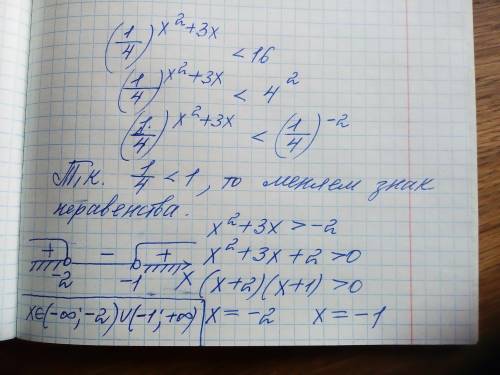 (1/4)^(x²+3x) < 16
(1/4)^(x²+3x) < 4²
(1/4)^(x²+3x) < (1/4)^(-2)
Т.к. 1/4 < 1, то меняем знак
неравенства.
x²+3x > -2
x²+3x+2 > 0
(x+2)(x+1) > 0
x = -2 x = -1
+ - +
-2 -1 x
x∈(-∞;-2)∪(-1;+∞)